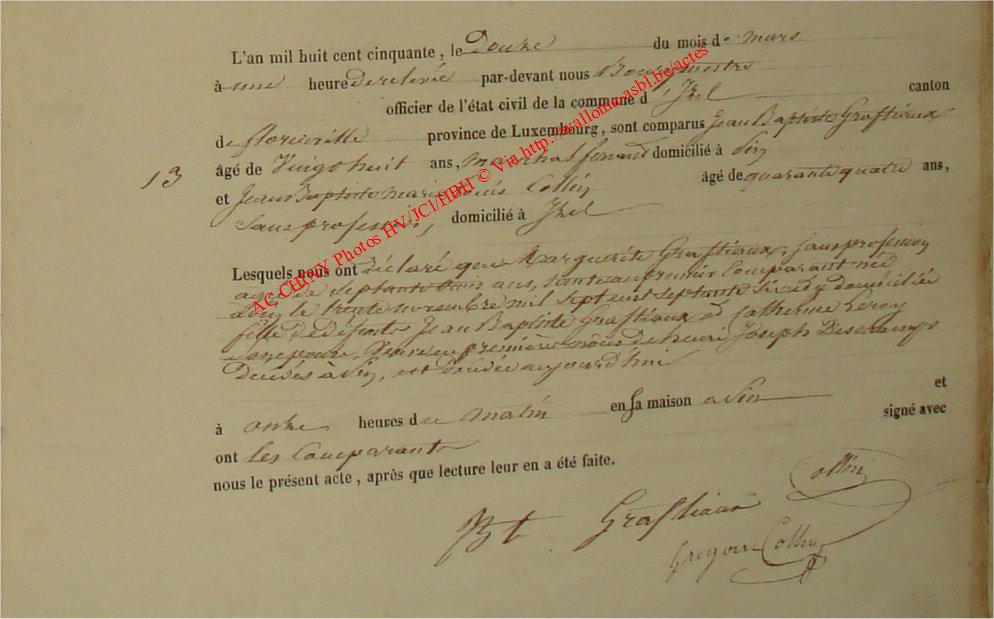 L'an mil huit cent cinquante, le Douze du mois de mars
à une heure de relevée par-devant nous Bourgmestre
officier de l'état civil de la commune d'Izel canton
de florenville province de Luxembourg, sont comparus Jean Baptiste Graftiaux
13 âgé de Vingt huit ans, marchal ferrand domicilié à Pin
et Jean Baptiste Marie Collin âgé de quarante quatre ans,
Sans profession, domicilié à Izel
Lesquels nous ont déclaré que Marguerite Graftiaux, Sans profession
agée de Septante ans, tante au premier Comparant née
le trente novembre mil Sept cent Septante Six et y domiciliée
fille de défunts Jean Baptiste Graftiaux et Catherine Leroy
en première nous de henri Joseph Deschamps
Décédés à Pin, est Décédée aujourd'hui
à onze heures du matin en sa maison a Pin et
ont les Comparants signé avec
nous le présent acte, après que lecture leur en a été faite.
Bt Graftiaux Collin
Gregoire Collin
AC-CHINY Photos HV/JCl/HBH © Via http://walloma.asbl.be/actes